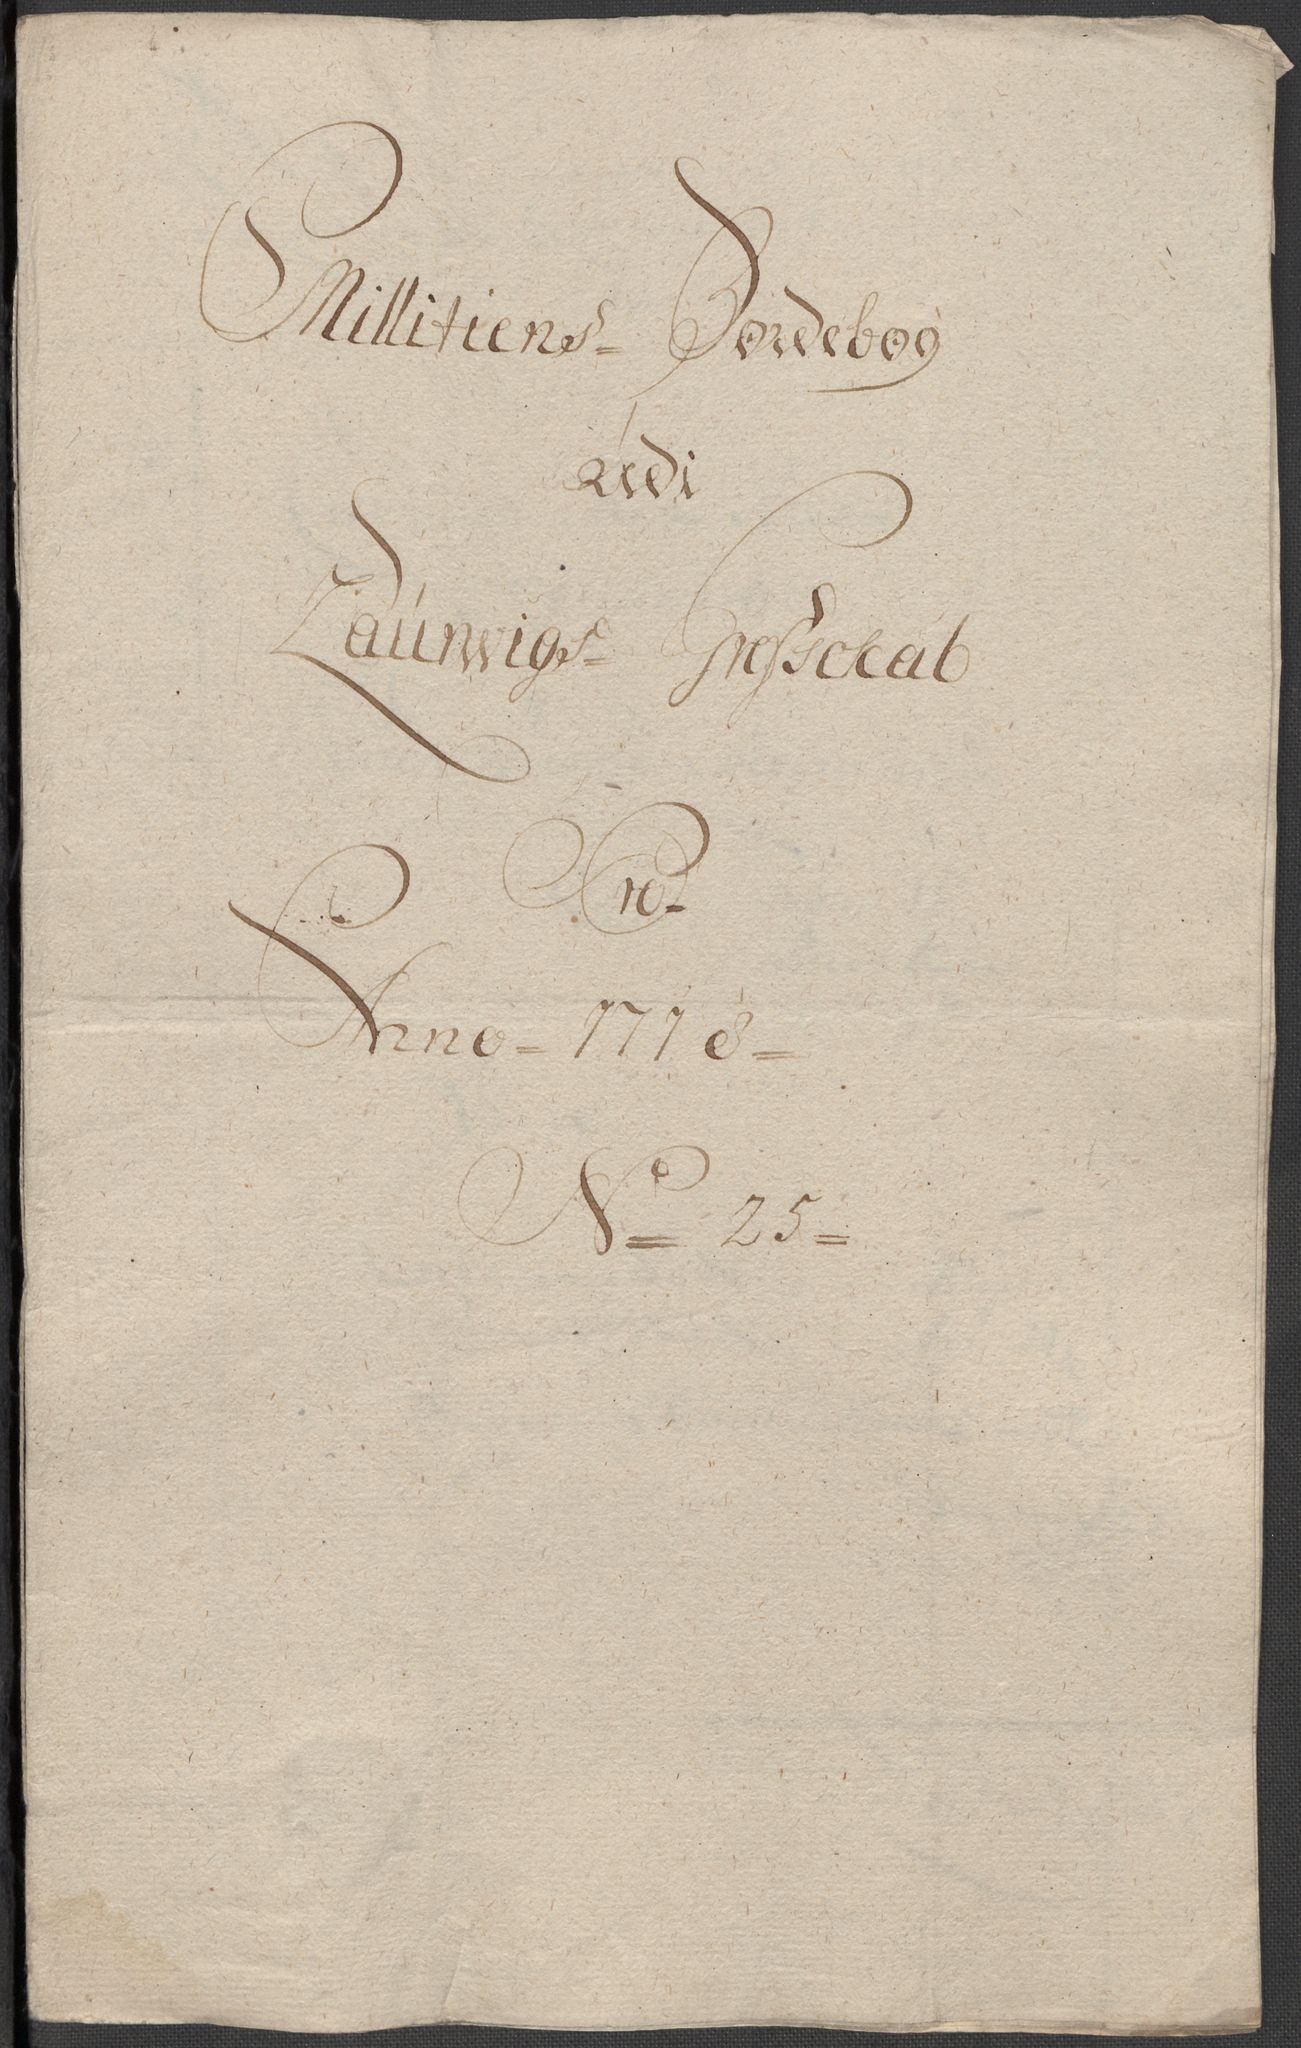 Millitiens Jordebog
udi
Laurwigs Grefsckab
Pro
Anno 1718
No 25